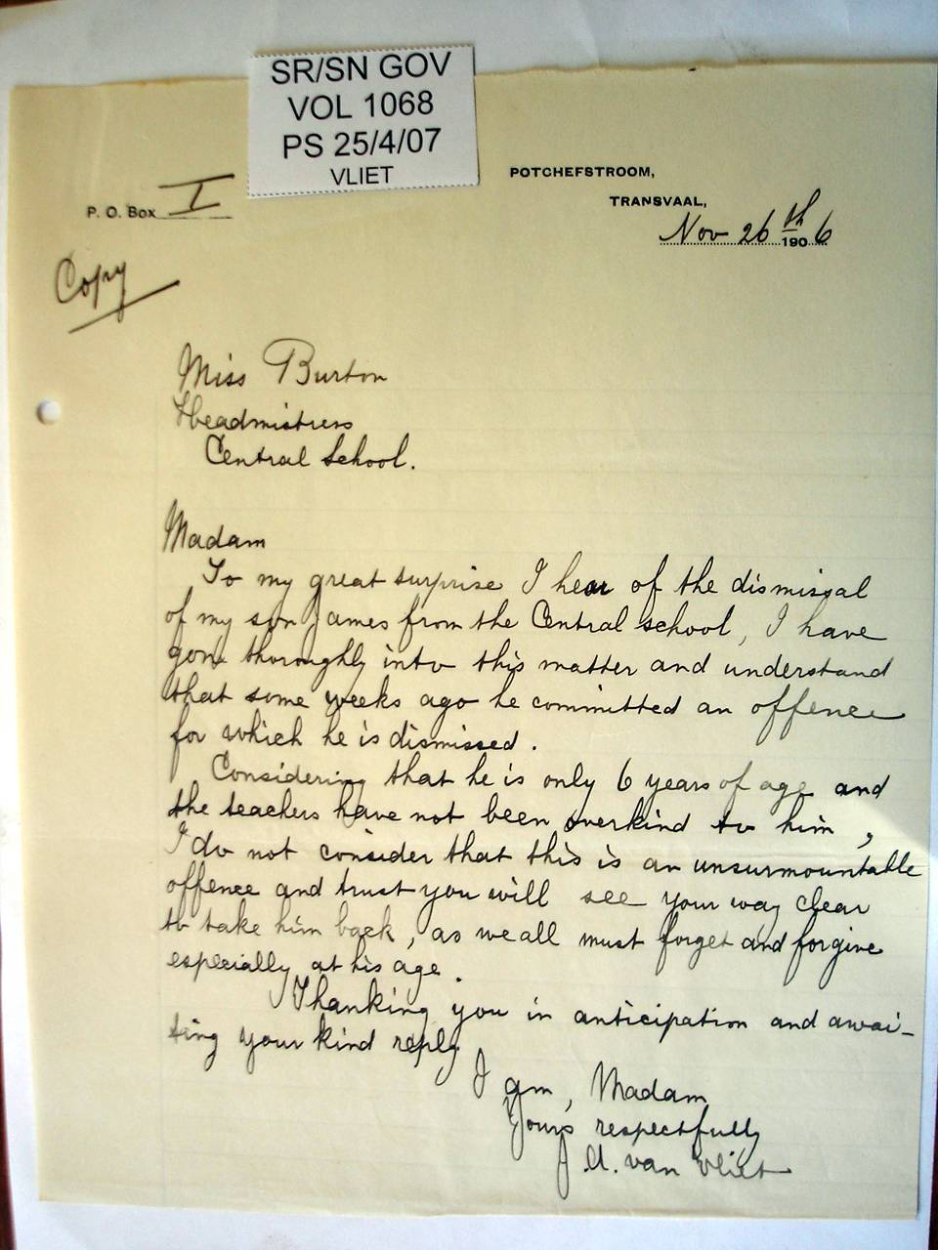 SR/SN GOV
VOL 1068
PS 25/4/07
VLIET
POTCHEFSTROOM,
TRANSVAAL,
P. O. Box I
Nov 26th 1906
Copy
Miss Burton
Headmistress
Central School.
Madam
To my great surprise I hear of the dismissal
of my son James from the Central School, I have
gone thoroughly into this matter and understand
that some weeks ago he committed an offence
for which he is dismissed.
Considering that he is only 6 years of age and
the teachers have not been overkind to him,
I do not consider that this is an unsurmountable
offence and trust you will see your way clear
to take him back, as we all must forget and forgive
especially at his age.
Thanking you in anticipation and awai-
ting your kind reply
I am, Madam
Yours respectfully
J. A. van Vliet